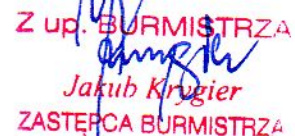 Z up. BURMISTRZA
Jakub Krygier
ZASTĘPCA BURMISTRZA